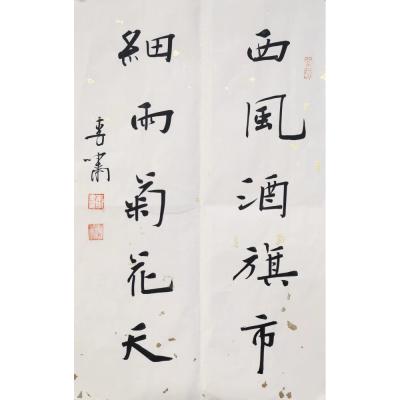 西風酒旗市
細雨菊花天
李嘯